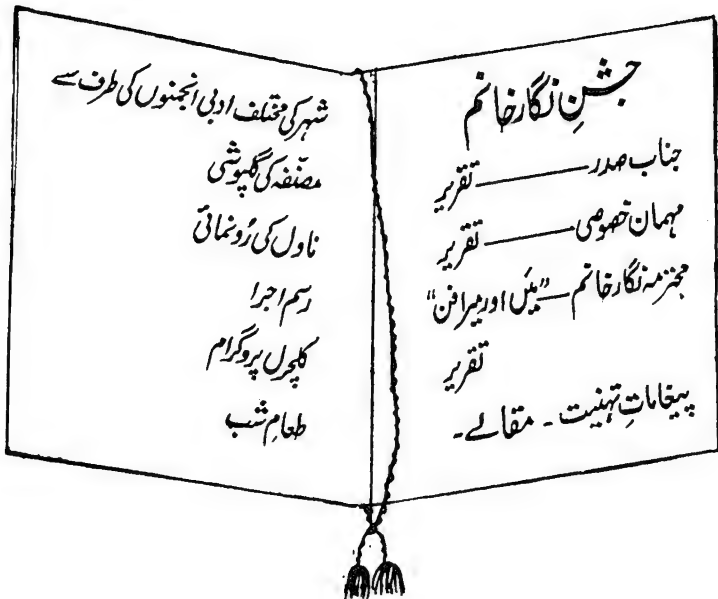 جشنِ نگار خانم
جناب صدر ——— تقریر
مہمان خصوصی ——— تقریر
محترمہ نگار خانم — "میں اور میرا فن"
تقریر
پیغاماتِ تہنیت - مقالے -
شہر کی مختلف ادبی انجمنوں کی طرف سے
مصنّفہ کی گلپوشی
ناول کی رُونمائی
رسم اجرا
کلچرل پروگرام
طعامِ شب